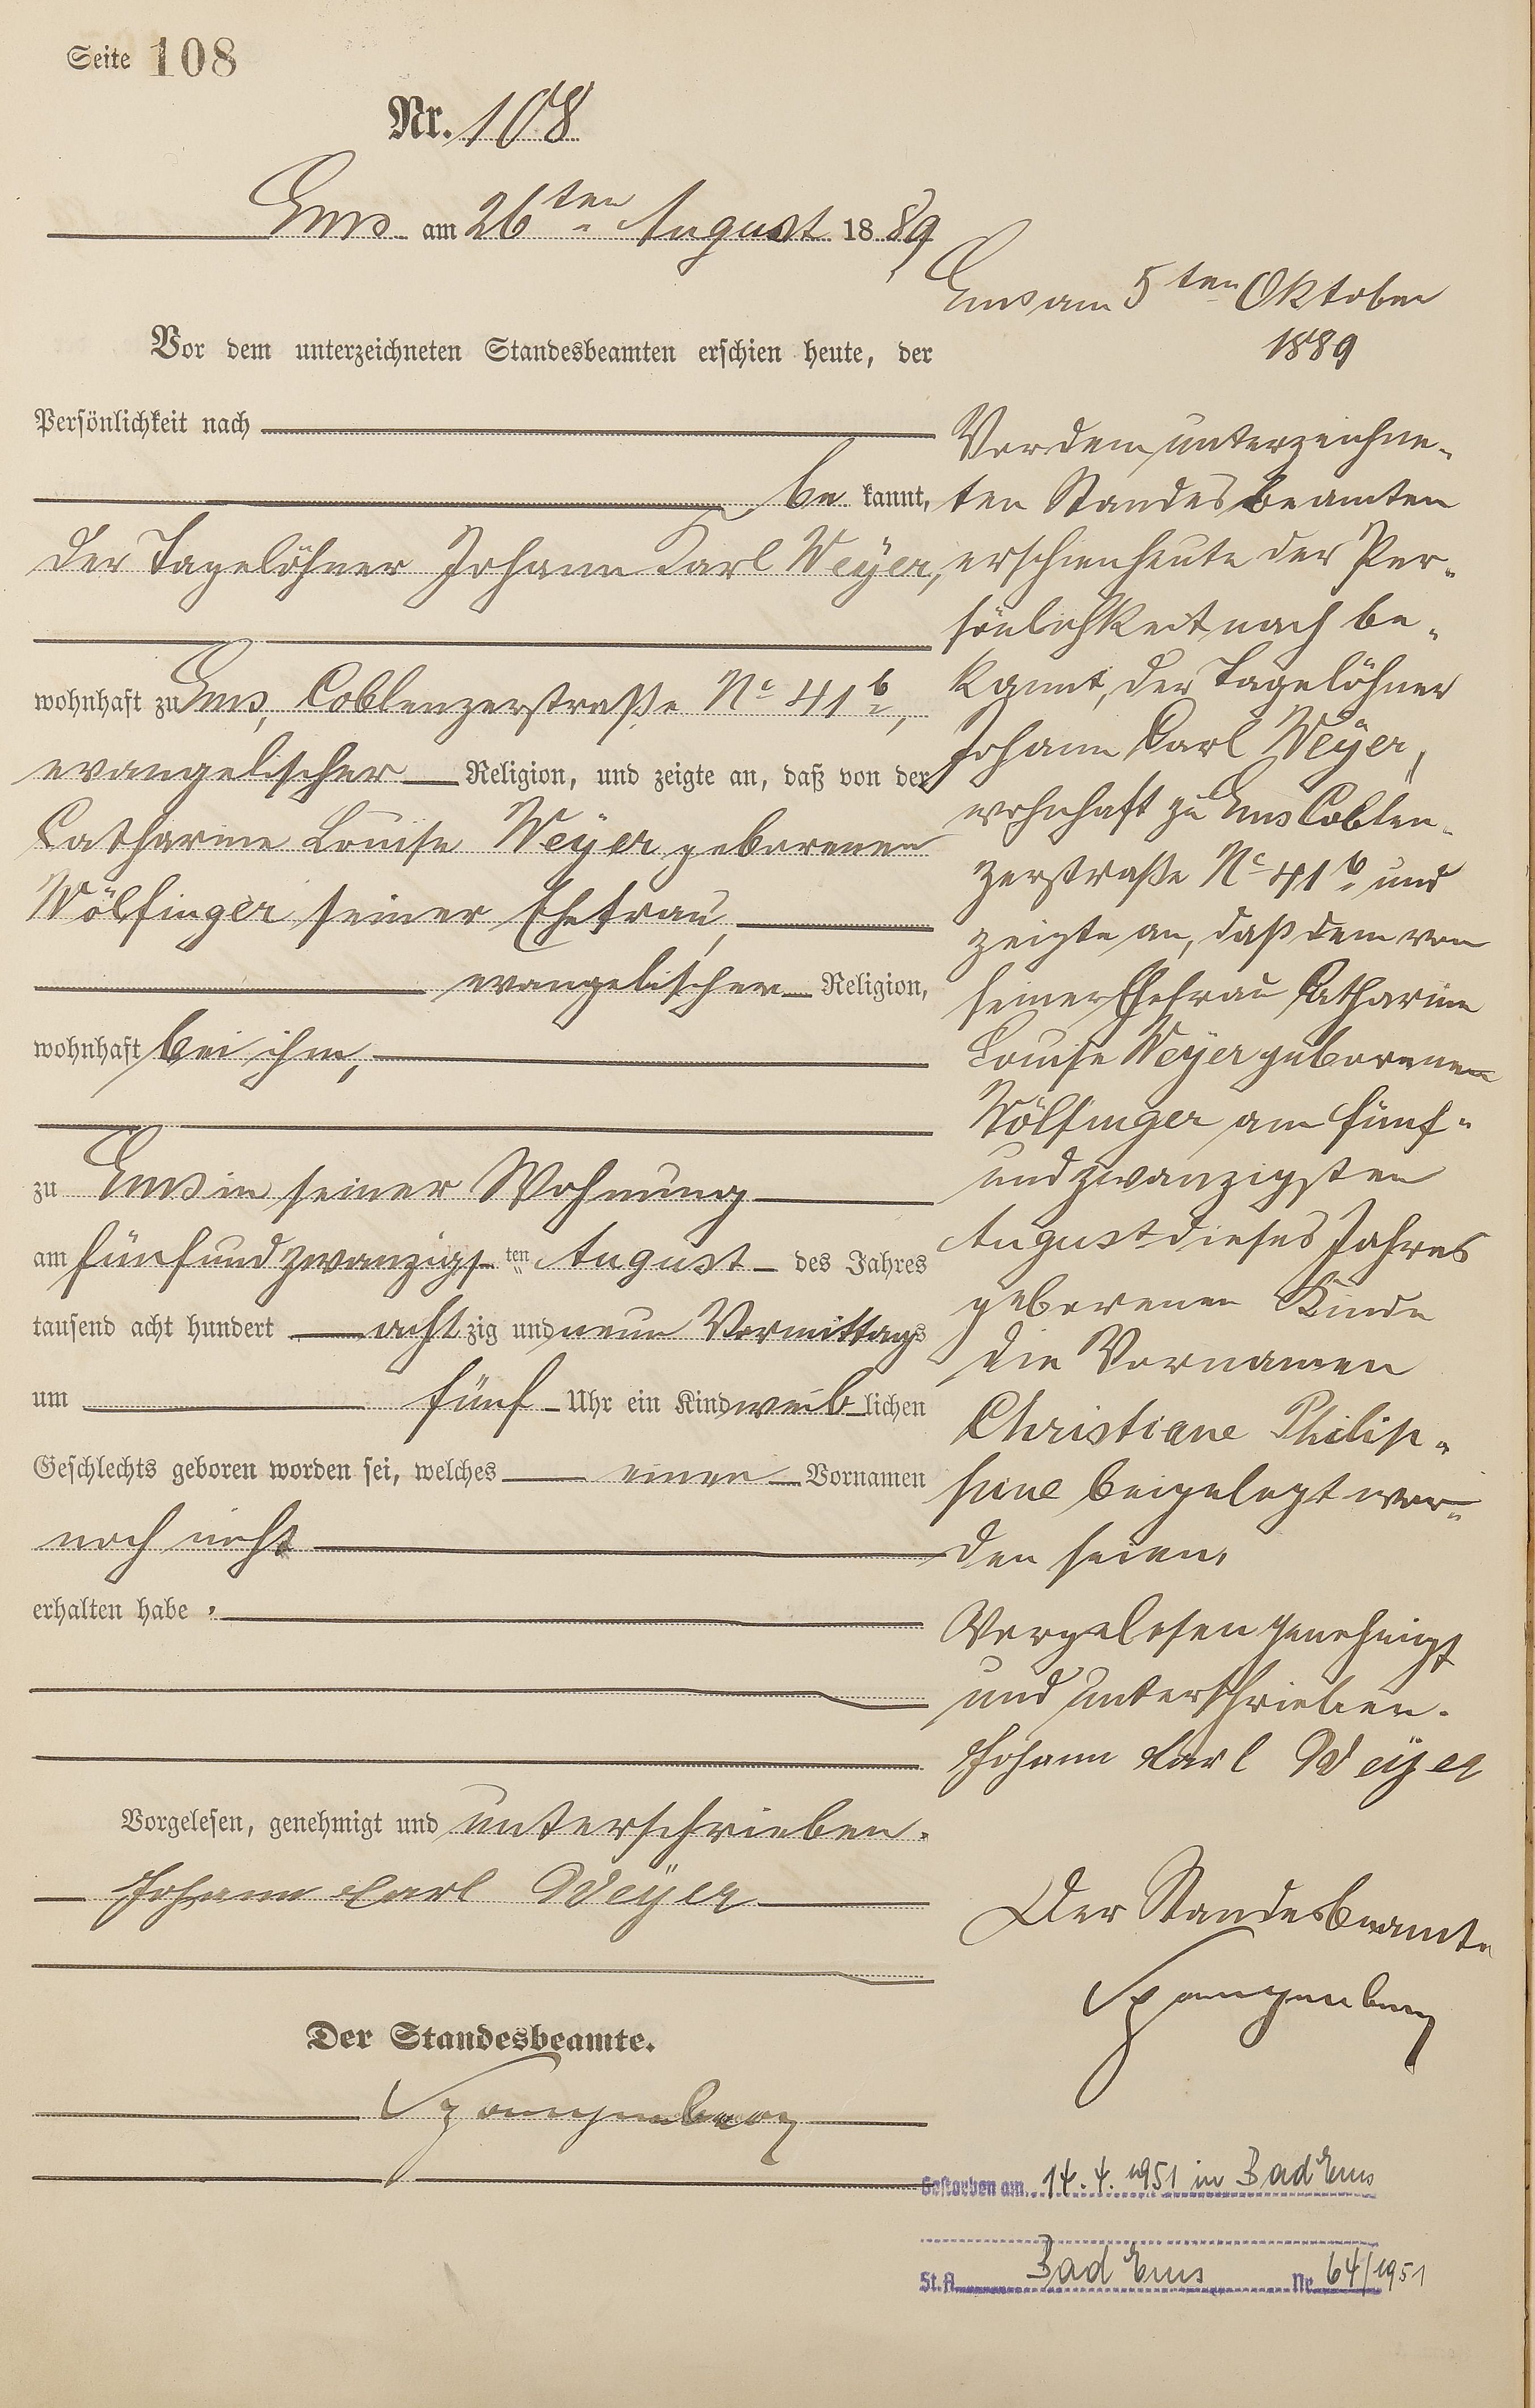 Seite 108
Nr. 108
Ems am 26ten August 1889
Vor dem unterzeichneten Standesbeamten erschien heute, der
Persönlichkeit nach
be kannt,
der Tagelöhner Johann Karl Weÿer,
wohnhaft zu Ems, Coblenzerstraße No 41b,
evangelischer Religion, und zeigte an, daß von der
Catharine Louise Weÿer geborenen
Wölfinger seiner Ehefrau,
evangelischer Religion,
wohnhaft bei ihm,
zu Ems in seiner Wohnung
am fünfundzwanzigsten August des Jahres
tausend acht hundert achtzig und neun Vormittags
um fünf Uhr ein Kind weiblichen
Geschlechts geboren worden sei, welches einen Vornamen
noch nicht
erhalten habe.
Vorgelesen, genehmigt und unterschrieben.
Johann Carl Weÿer
Der Standesbeamte.
Spangenberg
Ems am 5ten Oktober
1889
Vor dem unterzeichne-
ten Standesbeamten
erschien heute der Per-
sönlichkeit nach be-
kannt, der Tagelöhner
Johann Carl Weÿer,
wohnhaft zu Ems Coblen-
zerstraße No 41b und
zeigte an, daß dem von
seiner Ehefrau Catharine
Louise Weÿer geborenen
Wölfinger am fünf-
undzwanzigsten
August dieses Jahres
geborenen Kinde
die Vornamen
Christiane Philip-
pine beigelegt wor-
den seien.
Vorgelesen genehmigt
und unterschrieben.
Johann Carl Weÿer
Der Standesbeamte
Spangenberg
Gestorben am 14.4.1951 in Bad Ems
St.A. Bad Ems Nr. 64/1951